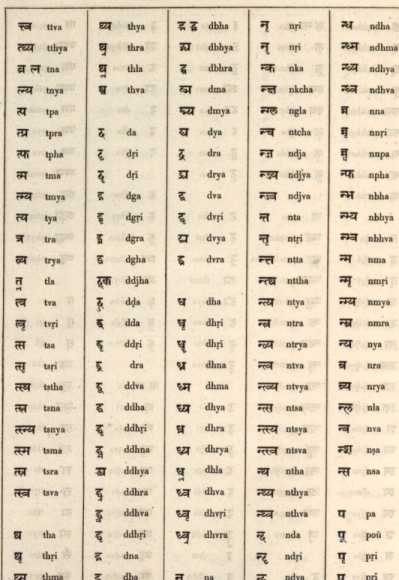 त्त्व ttva
त्थ्य tthya
त्न tna
त्न्य tnya
त्प tpa
त्प्र tpra
त्फ tpha
त्म tma
त्म्य tmya
त्य tya
त्र tra
त्र्य trya
त्ल tla
त्व tva
त्वृ tvṛi
त्स tsa
त्सृ tsṛi
त्स्थ tstha
त्स्न tsna
त्स्न्य tsnya
त्स्म tsma
त्स्र tsra
त्स्व tsva
थ tha
थृ thṛi
थ्म thma
थ्य thya
थ्र thra
थ्ल thla
थ्व thva
द da
दृ dṛi
दॄ dṝi
द्ग dga
द्गृ dgṛi
द्ग्र dgra
द्घ dgha
द्झ ddjha
द्ड dḍa
द्द dda
द्दृ ddṛi
द्र dra
द्द्व ddva
द्ध ddha
द्धृ ddhṛi
द्ध्न ddhna
द्ध्य ddhya
द्ध्र ddhra
द्ध्व ddhva
द्धृ ddhṛi
द्न dna
द्ब dba
द्भ dbha
द्भ्य dbhya
द्भ्र dbhra
द्म dma
द्म्य dmya
द्य dya
द्र dra
द्र्य drya
द्व dva
द्वृ dvṛi
द्व्य dvya
द्व्र dvra
ध dha
धृ dhṛi
धॄ dhṝi
ध्न dhna
ध्म dhma
ध्य dhya
ध्र dhra
ध्र्य dhrya
ध्ल dhla
ध्व dhva
ध्वृ dhvṛi
ध्व्र dhvra
न na
नृ nṛi
नॄ nṝi
न्क nka
न्क्ष nkcha
न्ग्ल ngla
न्च ntcha
न्ज ndja
न्ज्य ndjya
न्ज्व ndjva
न्त nta
न्तृ ntṛi
न्त्त ntta
न्त्थ nttha
न्त्य ntya
न्त्र ntra
न्त्र्य ntrya
न्त्व ntva
न्त्व्य ntvya
न्त्स ntsa
न्त्स्य ntsya
न्त्स्व ntsva
न्थ ntha
न्थ्य nthya
न्थ्व nthva
न्द nda
न्दृ ndṛi
न्द्य ndya
न्ध ndha
न्ध्म ndhma
न्ध्य ndhya
न्ध्व ndhva
न्न nna
न्नृ nnṛi
न्न्प nnpa
न्फ npha
न्भ nbha
न्भ्य nbhya
न्भ्व nbhva
न्म nma
न्मृ nmṛi
न्म्य nmya
न्म्र nmra
न्य nya
न्र nra
न्र्य nrya
न्ल nla
न्व nva
न्ष nṣa
न्स nsa
प pa
पू poû
पृ pṛi